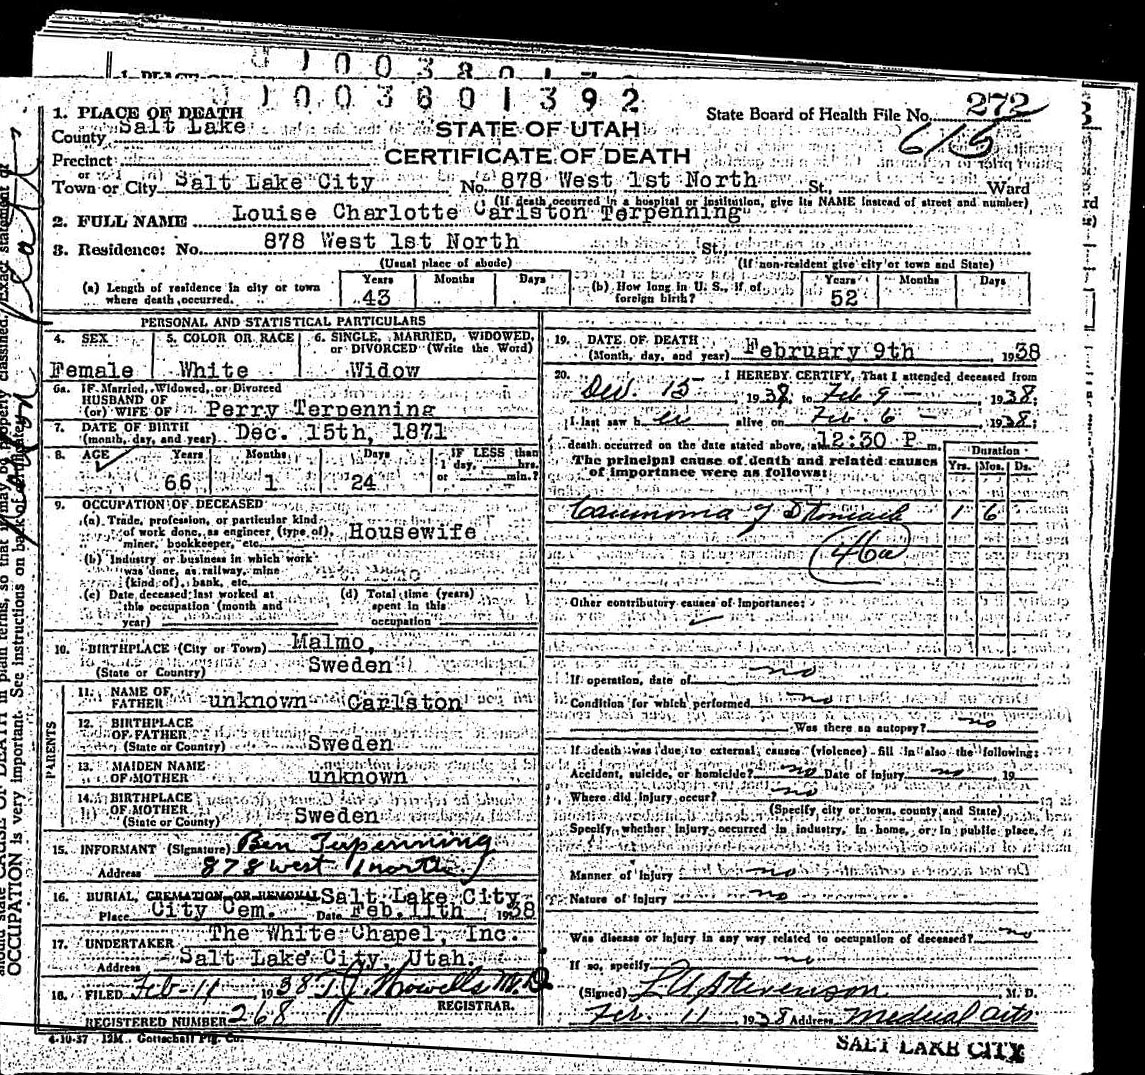 1003801392
1. PLACE OF DEATH
County Salt Lake
STATE OF UTAH
State Board of Health File No. 272
615
Precinct
CERTIFICATE OF DEATH
or
Town or City Salt Lake City No. 878 West 1st North St., Ward
(If death occurred in a hospital or institution, give its NAME instead of street and number)
2. FULL NAME Louise Charlotte Carlston Terpenning
3. Residence: No. 878 West 1st North St.
(Usual place of abode) (If non-resident give city or town and State)
(a) Length of residence in city or town where death occurred. Years 43 Months Days
(b) How long in U. S., if of foreign birth? Years 52 Months Days
PERSONAL AND STATISTICAL PARTICULARS
4. SEX 5. COLOR OR RACE 6. SINGLE, MARRIED, WIDOWED, or DIVORCED (Write the Word)
Female White Widow
6a. IF Married, Widowed, or Divorced
HUSBAND OF
(or) WIFE OF Perry Terpenning
7. DATE OF BIRTH
(month, day, and year) Dec. 15th, 1871
8. AGE Years Months Days IF LESS than
1 day, hrs.
or min.?
66 1 24
9. OCCUPATION OF DECEASED
(a) Trade, profession, or particular kind
of work done, as engineer (type of),
miner, bookkeeper, etc. Housewife
(b) Industry or business in which work
was done, as railway, mine
(kind of), bank, etc.
(c) Date deceased last worked at
this occupation (month and
year)
(d) Total time (years)
spent in this
occupation
10. BIRTHPLACE (City or Town) Malmo,
(State or Country) Sweden
PARENTS
11. NAME OF
FATHER unknown Carlston
12. BIRTHPLACE
OF FATHER
(State or Country) Sweden
13. MAIDEN NAME
OF MOTHER unknown
14. BIRTHPLACE
OF MOTHER
(State or Country) Sweden
15. INFORMANT (Signature) Ben Terpenning
Address 878 West 1 north
16. BURIAL, CREMATION OR REMOVAL Salt Lake City
Place City Cem. Date Feb. 11th 1938
17. UNDERTAKER The White Chapel, Inc.
Address Salt Lake City, Utah.
18. FILED Feb-11 1938 T J Howells M.D.
REGISTRAR.
REGISTERED NUMBER 268
4-10-37 12M. Gottschall Ptg. Co.
19. DATE OF DEATH
(Month, day, and year) February 9th 1938
20. I HEREBY CERTIFY, That I attended deceased from
Dec. 15 1938, to Feb 9 1938;
I last saw h er alive on Feb. 6 1938;
death occurred on the date stated above, 12:30 P m.
The principal cause of death and related causes
of importance were as follows:
Duration
Yrs. Mos. Ds.
Carcinoma of Stomach 1 6
46a
Other contributory causes of importance:
If operation, date of no
Condition for which performed no
Was there an autopsy? no
If death was due to external causes (violence) fill in also the following:
Accident, suicide, or homicide? no Date of injury no, 19
Where did injury occur? no
(Specify city or town, county and State)
Specify whether injury occurred in industry, in home, or in public place.
Manner of injury no
Nature of injury no
Was disease or injury in any way related to occupation of deceased? no
If so, specify no
(Signed) L A Stevenson, M. D.
Feb. 11 1938 Address Medical Arts
SALT LAKE CITY
OCCUPATION is very important. See instructions on back of certificate.